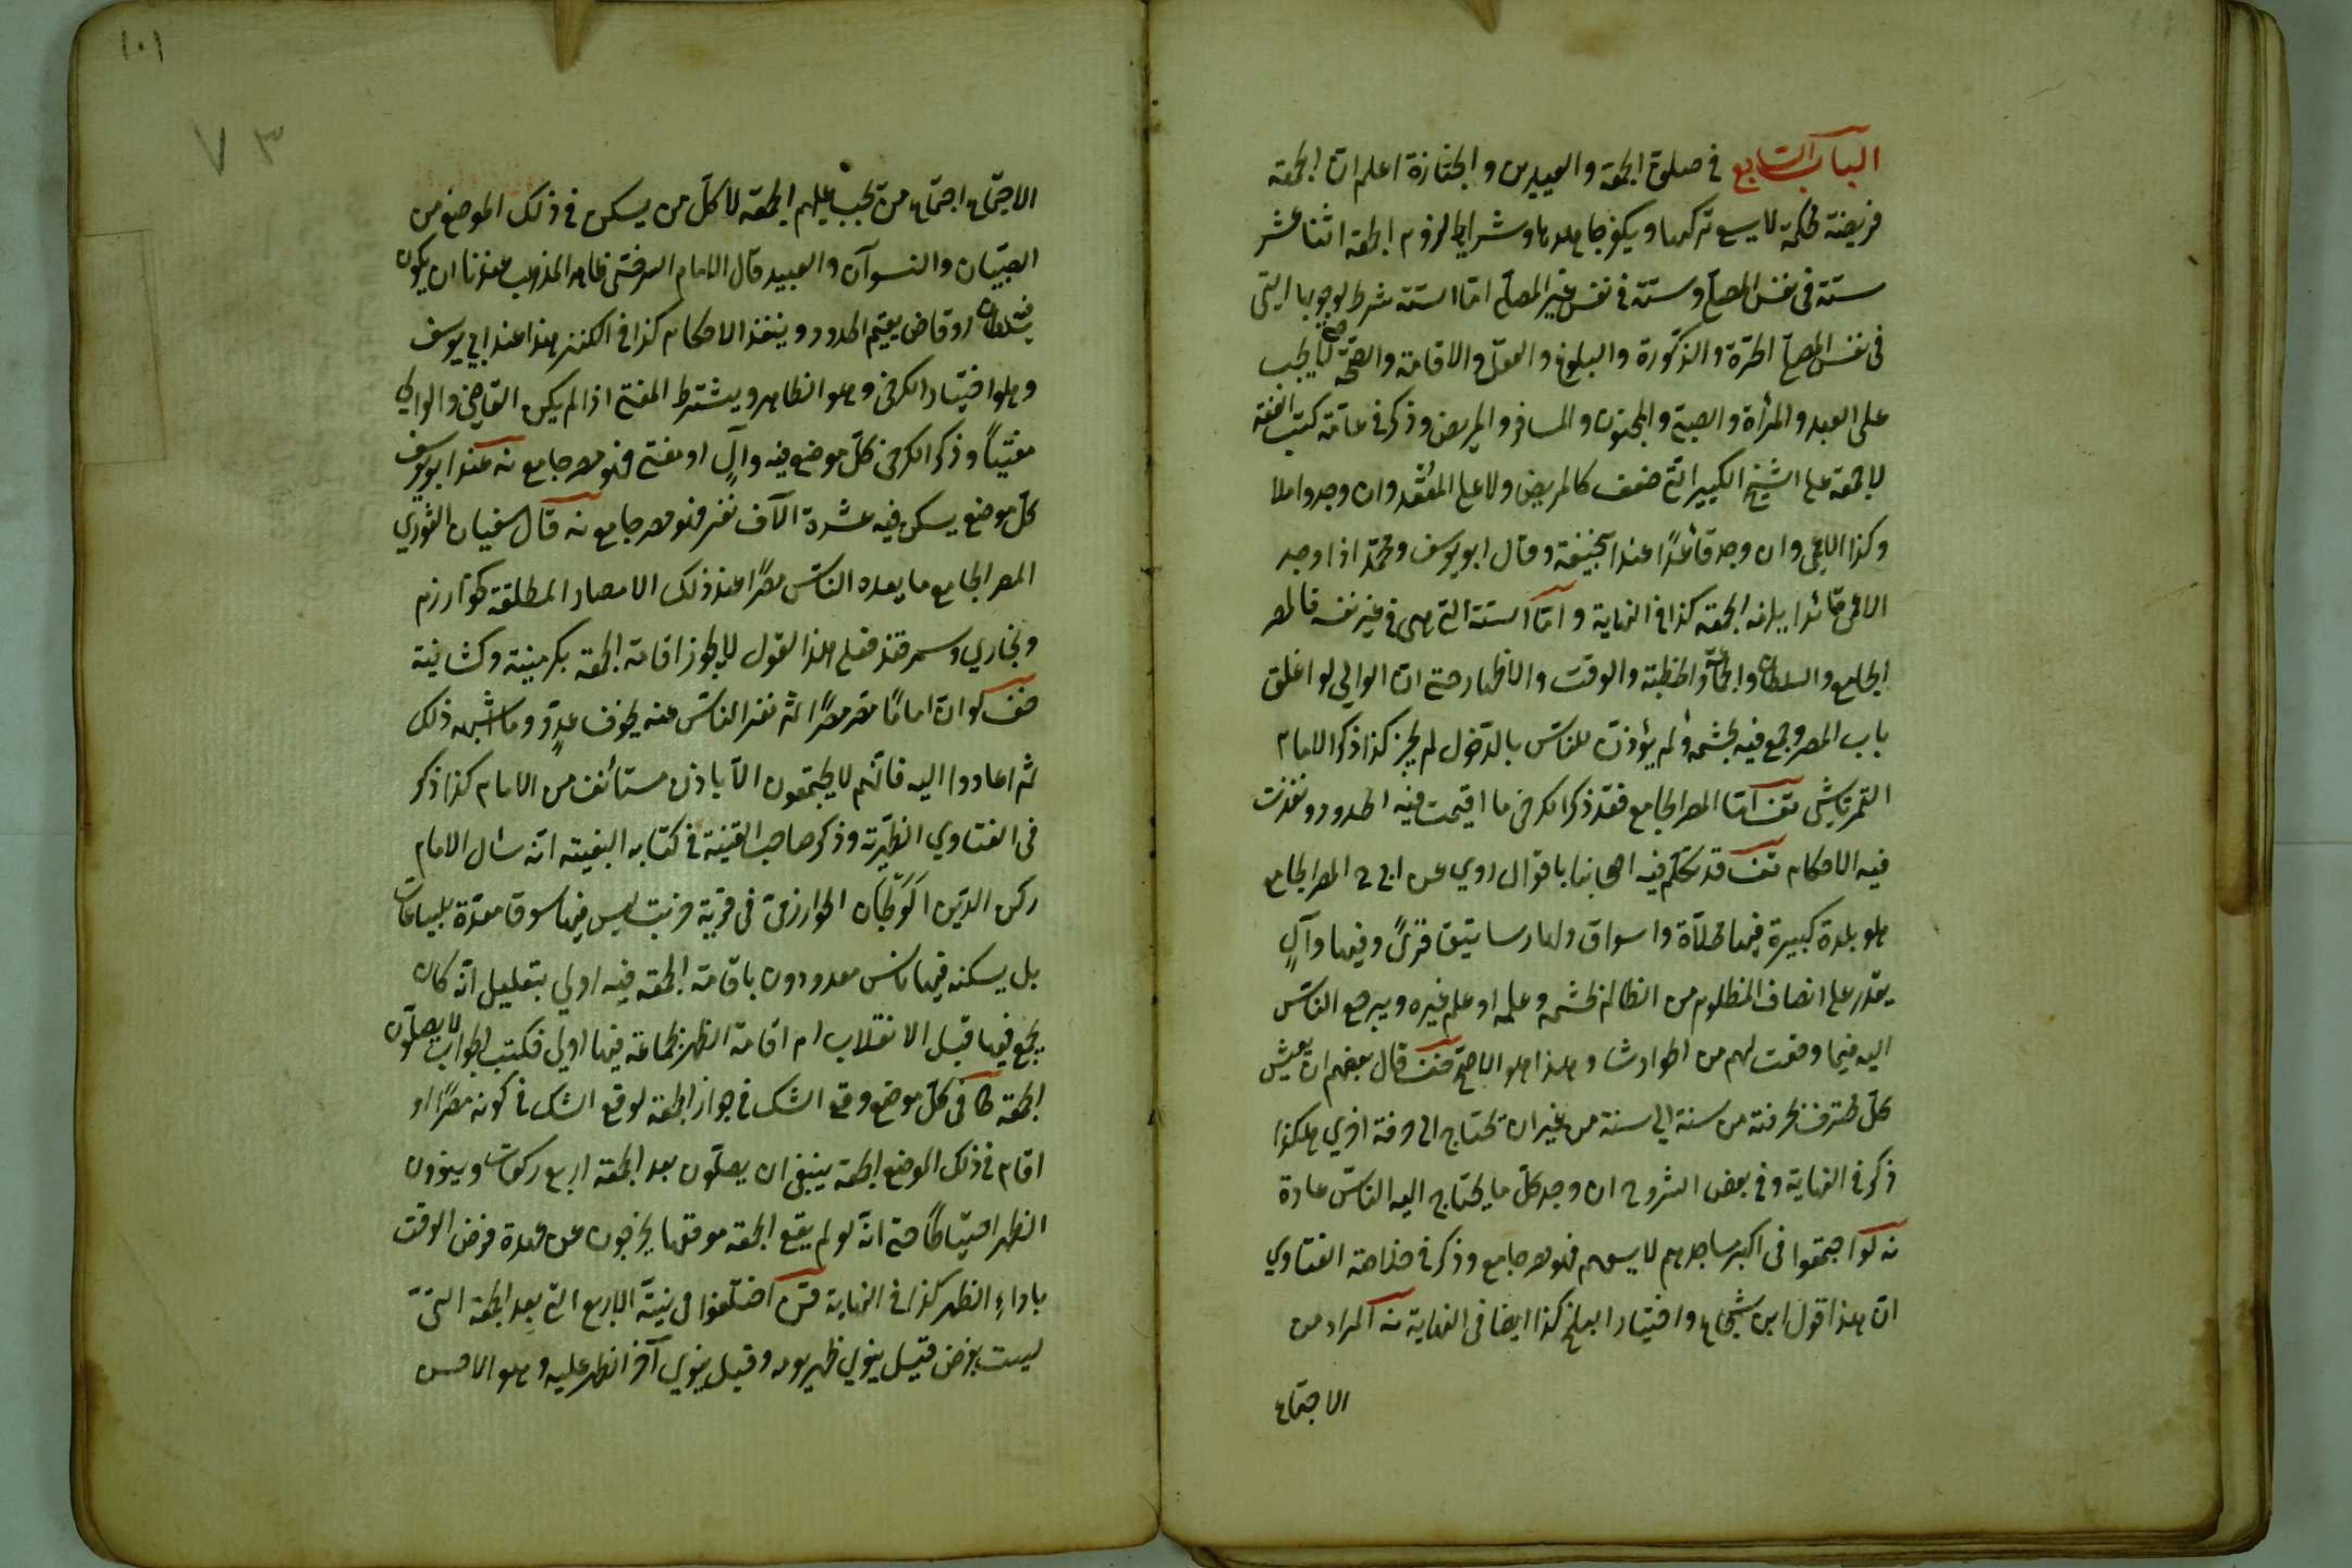 الباب السابع في صلوة الجمعة والعيدين والجنازة اعلم ان الجمعة
فريضة محكمة لا يسع تركها ويكفر جاحدها وشرايط لزوم الجمعة اثنا عشر
ستة في نفس المصلّي وستة في نفس غير المصلّي امّا الستة شرط لوجوبها التي
في نفس المصلّي الحرّة والذكورة والبلوغ والعقل والاقامة والصحّة حتى لا يجب
على العبد والمرأة والصبيّ والمجنون والمسافر والمريض وذكر في عامّة كتب الفقه
لا جمعة على الشيخ الكبير الذي ضعف كالمريض ولا على المقعد وان وجد حاملا
وكذا الاعمى وان وجد قائدًا عند ابيحنيفة وقال ابو يوسف ومحمّد اذا وجد
الاعمى قائدا يلزمه الجمعة كذا في النهاية وامّا الستة التي هي في غير نفسه فالمصر
الجامع والسلطان والجماعة والخطبة والوقت والاظهار حتى انّ الوالي لو اغلق
باب المصر وجمع فيه بحشمه ولم يؤذن للناس بالدّخول لم يجز كذا ذكر الامام
التمرتاشي تف امّا المصر الجامع فقد ذكر الكرخي ما اقيمت فيه الحدود ونفذت
فيه الاحكام تف قد تكلّم فيه اصحابنا باقوال روي عن ابي ح المصر الجامع
هو بلدة كبيرة فيها محلاّة واسواق ولها رساتيق قرىً وفيها والٍ
يقدر على انصاف المظلوم من الظالم بحشمه وعلمه او علم غيره ويرجع الناس
اليه فيما وقعت لهم من الحوادث وهذا هو الاصحّ قف قال بعضهم ان يعيش
كلّ محترف بحرفته من سنة الي سنة من غير ان تحتاج الى حرفة اخري هكذا
ذكر في النهاية وفي بعض الشروح ان وجد كلّ ما يحتاج اليه الناس عادة
نه لو اجتمعوا في اكبر مساجدهم لا يسعهم فهو مصر جامع وذكر في خلاصة الفتاوي
انّ هذا قول ابن شجاع واختيار البلخي كذا ايضا في النهاية نه المراد من
الاجتماع
١٠١
٧٣
الاجتماع اجتماع من تجب عليهم الجمعة لا كلّ من يسكن في ذلك الموضع من
الصبيان والنسوان والعبيد قال الامام السرخسي ظاهر المذهب عندنا ان يكون
فيه سلطان او قاض يقيم الحدود وينفذ الاحكام كذا في الكنز هذا عند ابي يوسف
وهو اختيار الكرخي وهو الظاهر ويشترط المفتي اذا لم يكن القاضي والوالي
مفتيًا وذكر الكرخي كلّ موضع فيه والٍ او مفتي فهو مصر جامع نه عند ابو يوسف
كلّ موضع يسكن فيه عشرة الآف نفر فهو مصر جامع نه قال سفيان الثوري
المصر الجامع ما يعده الناس مصرًا عند ذلك الامصار المطلقة كخوارزم
وبخاري وسمرقند فعلى هذا القول لا يجوز اقامة الجمعة بكرمينية وكشانية
ضف لو انّ امامًا مصّر مصرًا ثم نفر الناس عنه بخوف عدوّ وما اشبه ذلك
ثم اعادوا اليه فانّهم لا يجتمعون الاّ باذن مستأنف من الامام كذا ذكر
في الفتاوي الظهيرّية وذكر صاحب القنية في كتابه البغية انّه سئل الامام
ركن الدين الخوارزمي في قرية خربت ليس فيها سوق معدّة للبياعات
بل يسكنه فيها ناس معدودون باقامة الجمعة فيه اولي بتعليل انّه كان
يجمع فيها قبل الانقلاب ام اقامة الظهر بجماعة فيها اولى فكتب الجواب لا يصلّون
الجمعة كافي كلّ موضع وقع الشك في جواز الجمعة لوقع الشك في كونه مصرًا او
اقام في ذلك الموضع الجمعة ينبغي ان يصلّون بعد الجمعة اربع ركعات وينوون
الظهر احتياطًا حتى انّه لو لم يقع الجمعة موقعها يخرجون عن عهدة فرض الوقت
باداء الظهر كذا في النهاية قن اختلفوا في نيّة الاربع التي بعد الجمعة التي
ليست بفرض قيل ينوي ظهر يومه وقيل ينوي آخر الظهر عليه وهو الاحسن